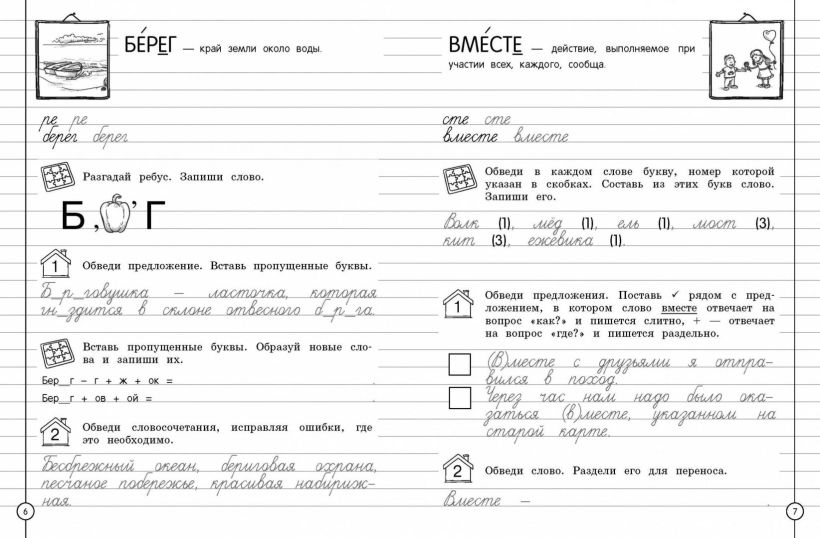 БЕ́РЕГ — край земли около воды.
ре ре
берег берег
Разгадай ребус. Запиши слово.
Б , ’ Г
1 Обведи предложение. Вставь пропущенные буквы.
Б_р_говушка – ласточка, которая
гн_здится в склоне отвесного б_р_га.
Вставь пропущенные буквы. Образуй новые сло-
ва и запиши их.
Бер__г – г + ж + ок = .
Бер__г + ов + ой = .
2 Обведи словосочетания, исправляя ошибки, где
это необходимо.
Безбрежный океан, бериговая охрана,
песчаное побережье, красивая набириж-
ная.
6
ВМЕ́СТЕ — действие, выполняемое при
участии всех, каждого, сообща.
сте сте
вместе вместе
Обведи в каждом слове букву, номер которой
указан в скобках. Составь из этих букв слово.
Запиши его.
Волк (1), мёд (1), ель (1), мост (3),
кит (3), ежевика (1).
1 Обведи предложения. Поставь ✓ рядом с пред-
ложением, в котором слово вместе отвечает на
вопрос «как?» и пишется слитно, + — отвечает
на вопрос «где?» и пишется раздельно.
(В)месте с друзьями я отпра-
вился в поход.
Через час нам надо было ока-
заться (в)месте, указанном на
старой карте.
2 Обведи слово. Раздели его для переноса.
Вместе – .
7